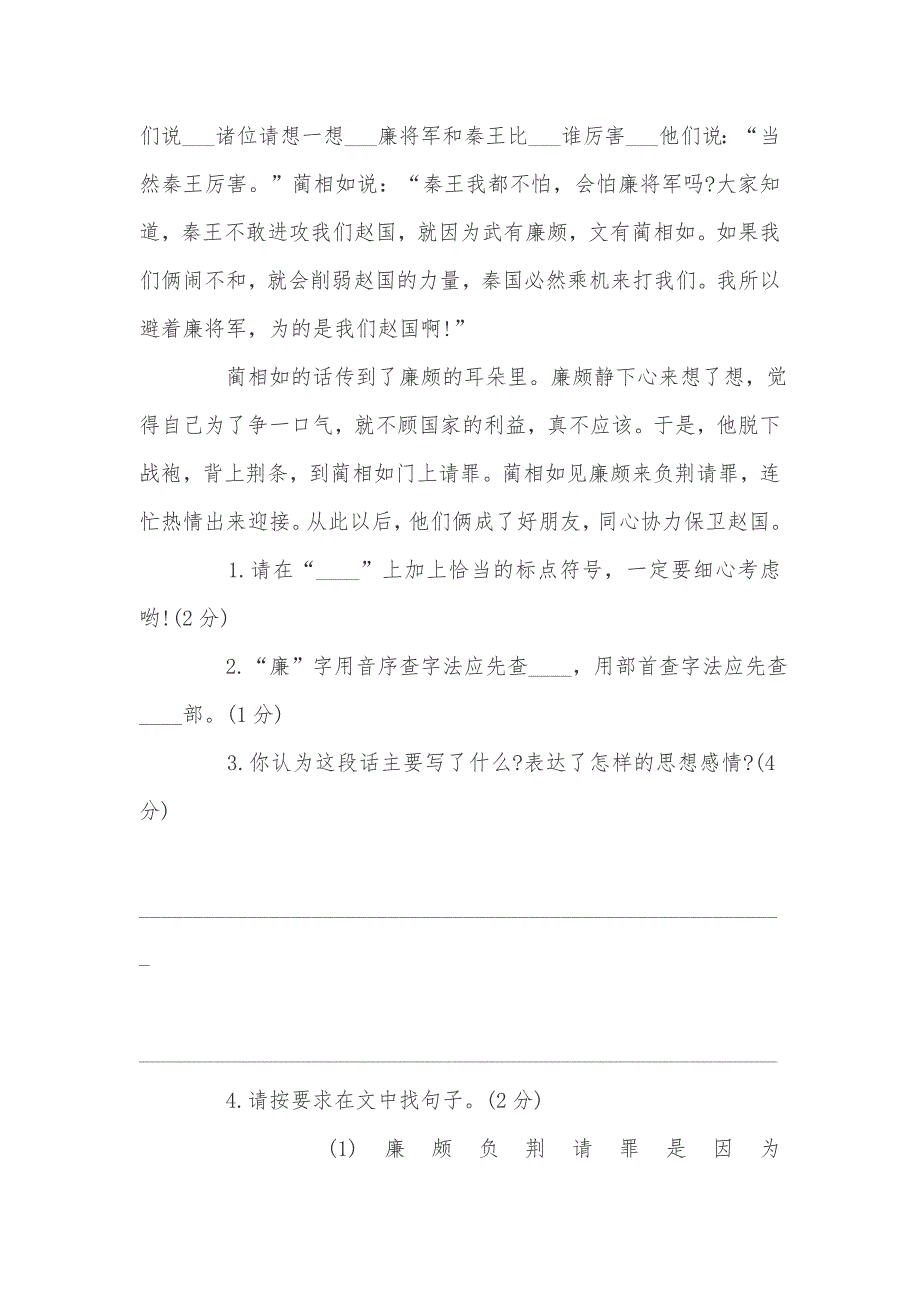 们说___诸位请想一想___廉将军和秦王比___谁厉害___他们说：“当
然秦王厉害。”蔺相如说：“秦王我都不怕，会怕廉将军吗?大家知
道，秦王不敢进攻我们赵国，就因为武有廉颇，文有蔺相如。如果我
们俩闹不和，就会削弱赵国的力量，秦国必然乘机来打我们。我所以
避着廉将军，为的是我们赵国啊!”
蔺相如的话传到了廉颇的耳朵里。廉颇静下心来想了想，觉
得自己为了争一口气，就不顾国家的利益，真不应该。于是，他脱下
战袍，背上荆条，到蔺相如门上请罪。蔺相如见廉颇来负荆请罪，连
忙热情出来迎接。从此以后，他们俩成了好朋友，同心协力保卫赵国。
1.请在“____”上加上恰当的标点符号，一定要细心考虑
哟!(2分)
2.“廉”字用音序查字法应先查____，用部首查字法应先查
____部。(1分)
3.你认为这段话主要写了什么?表达了怎样的思想感情?(4
分)
____________________________________________________________
_
____________________________________________________________
4.请按要求在文中找句子。(2分)
(1) 廉颇负荆请罪是因为